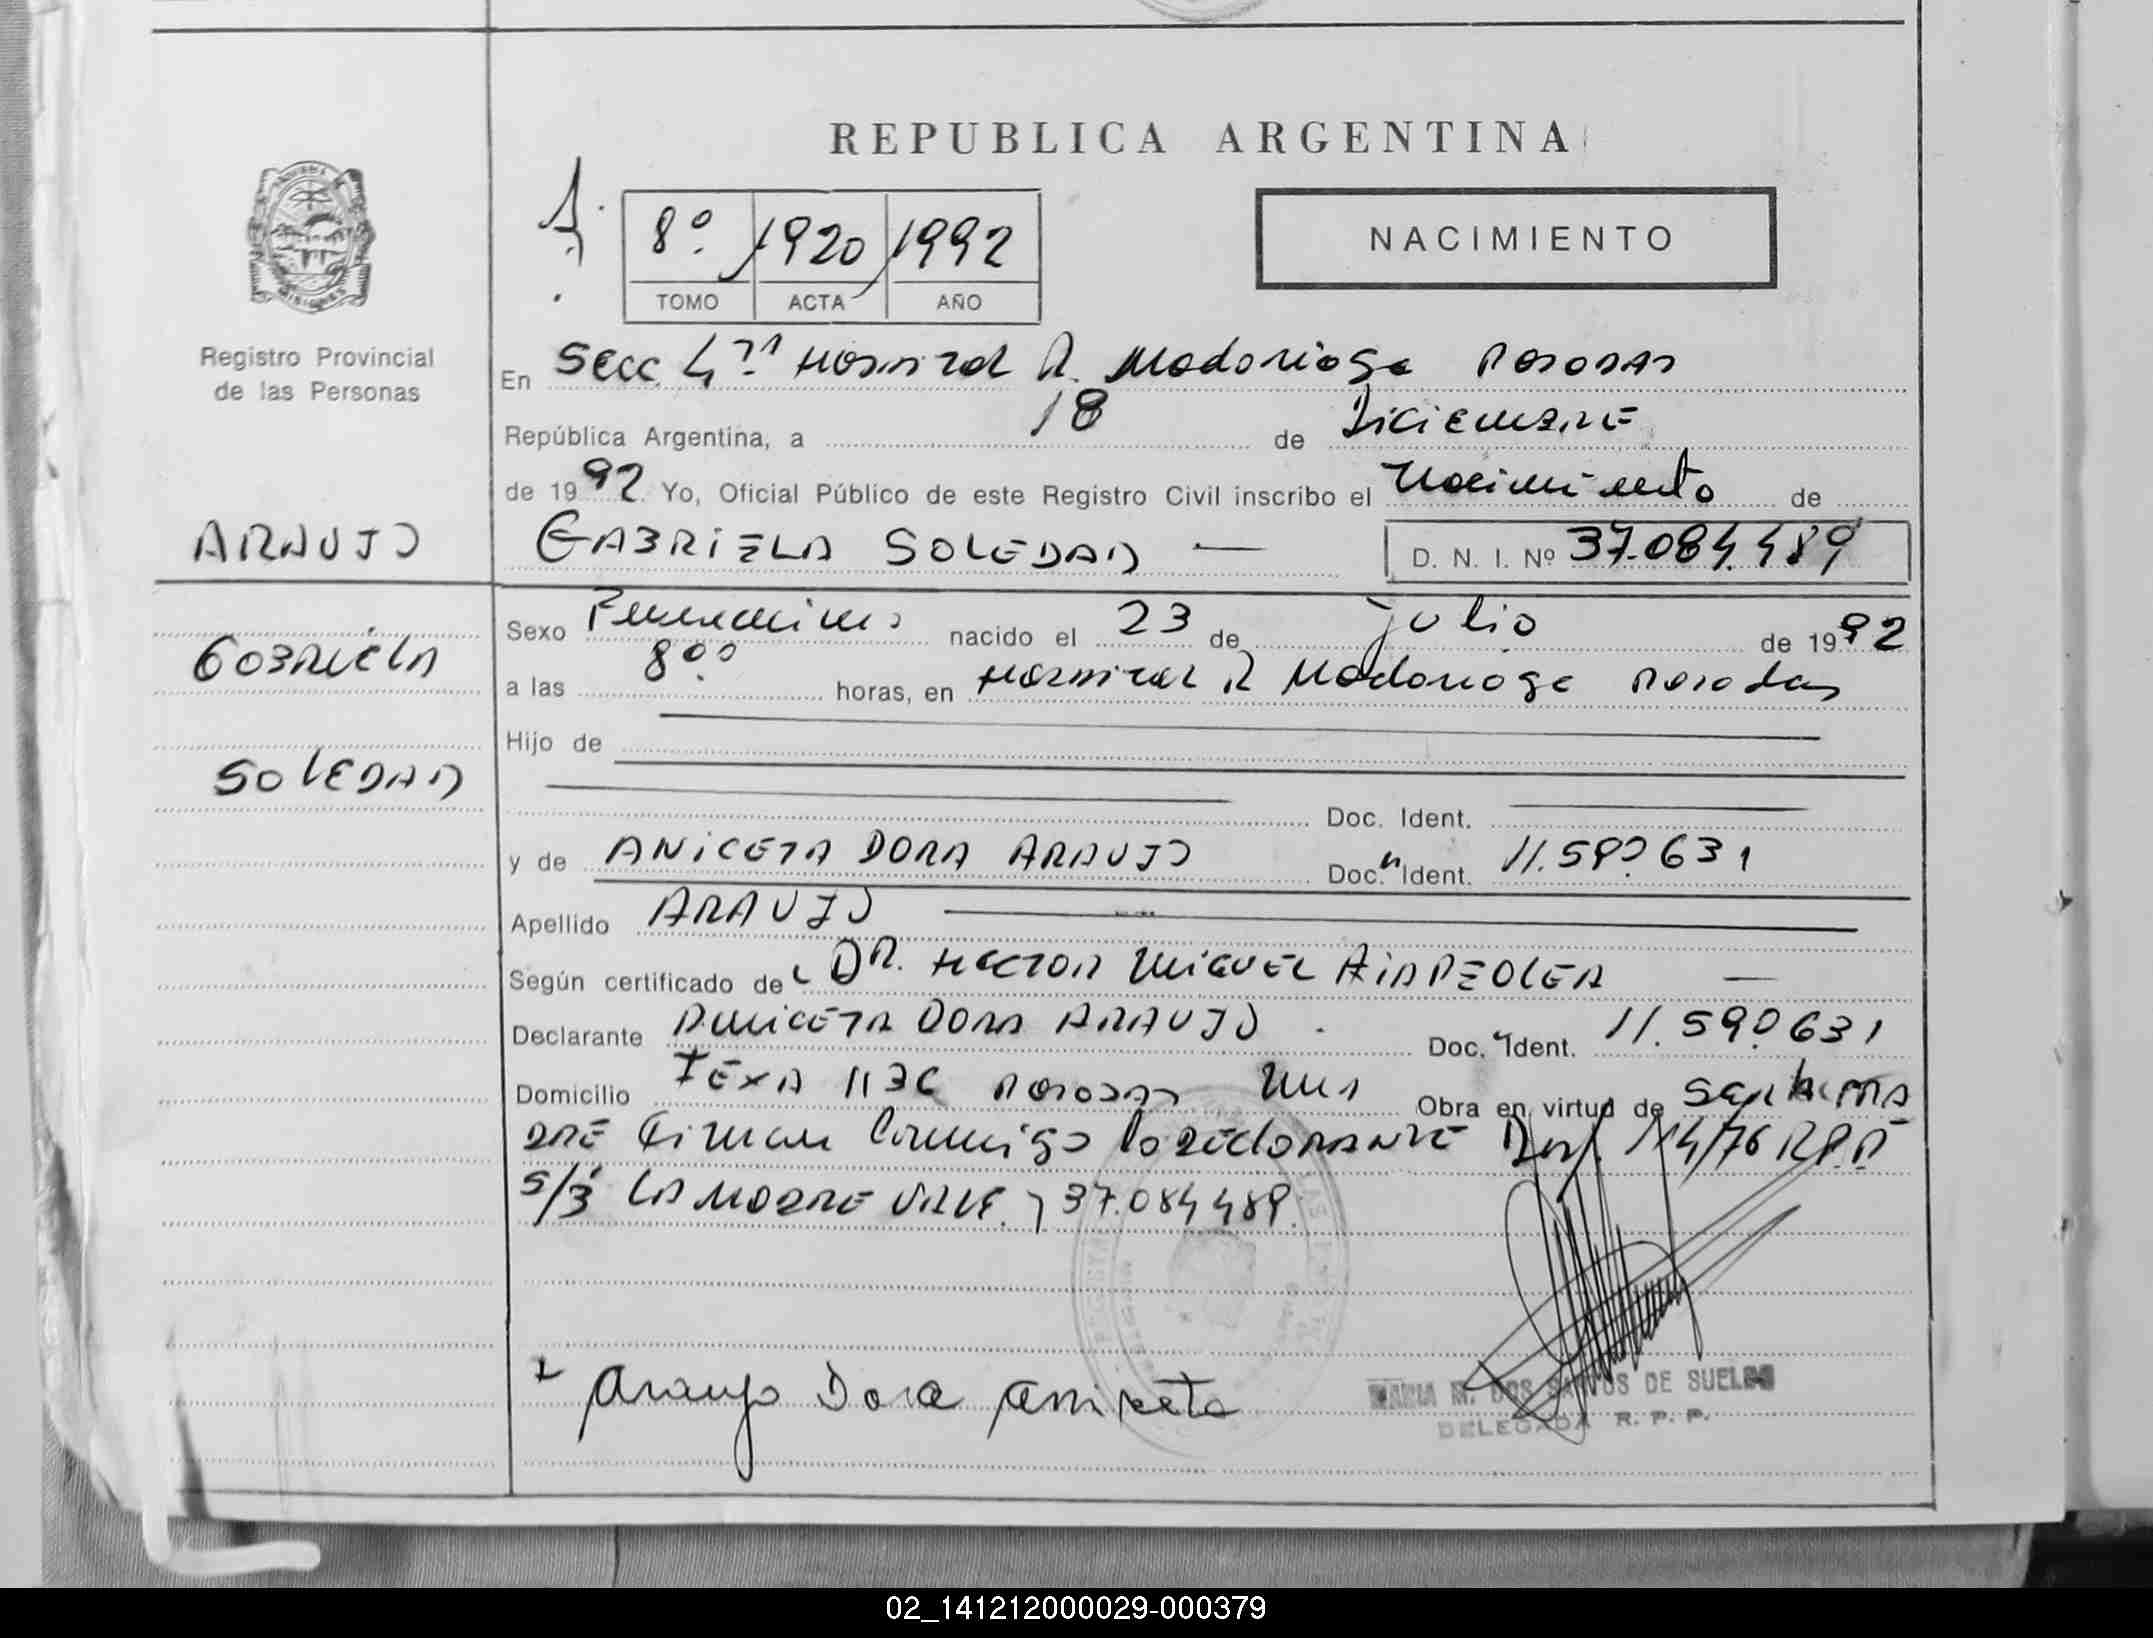 REPUBLICA ARGENTINA
8º 1920 1992
TOMO ACTA AÑO
NACIMIENTO
Registro Provincial
de las Personas
En Secc 4ta Hospital R. Madariaga Posadas
República Argentina, a 18 de Diciembre
de 1992 Yo, Oficial Público de este Registro Civil inscribo el Nacimiento de
ARAUJO
GABRIELA SOLEDAD — D. N. I. Nº 37.084.489
GABRIELA
SOLEDAD
Sexo Femenino nacido el 23 de julio de 1992
a las 8º⁰ horas, en Hospital R Madariaga Posadas
Hijo de
Doc. Ident.
y de ANICETA DORA ARAUJO Doc. Ident. 11.590.631
Apellido ARAUJO
Según certificado de DR. HECTOR MIGUEL —
Declarante ANICETA DORA ARAUJO. Doc. Ident. 11.590.631
Domicilio 1136 Posadas Mnes Obra en virtud de ser la ma
dre Firman Conmigo la declarante Disp. 114/76 R.P.P
S/B LA MADRE VALE y 37.084.489.
Araujo Dora Aniceta
MARIA M. DOS SANTOS DE SUELDO
DELEGADA R. P. P.
02_141212000029-000379